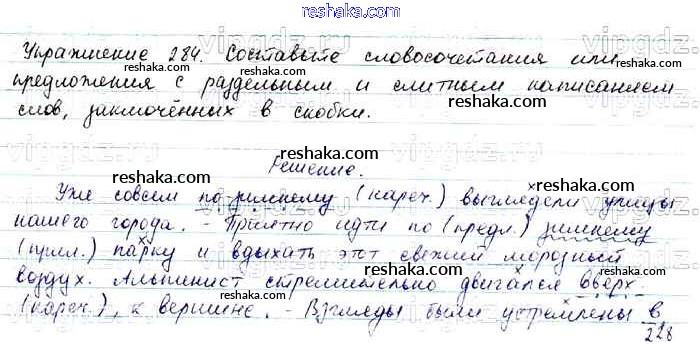 reshaka.com
Упражнение 284. Составьте словосочетания или
предложения с раздельным и слитным написанием
слов, заключённых в скобки.
Решение.
Уже совсем по-зимнему (нареч.) выглядели улицы
нашего города. - Приятно идти по (предл.) зимнему
(прил.) парку и вдыхать этот свежий морозный
воздух. Альпинист стремительно двигался вверх
(нареч.), к вершине. - Взгляды были устремлены в
228